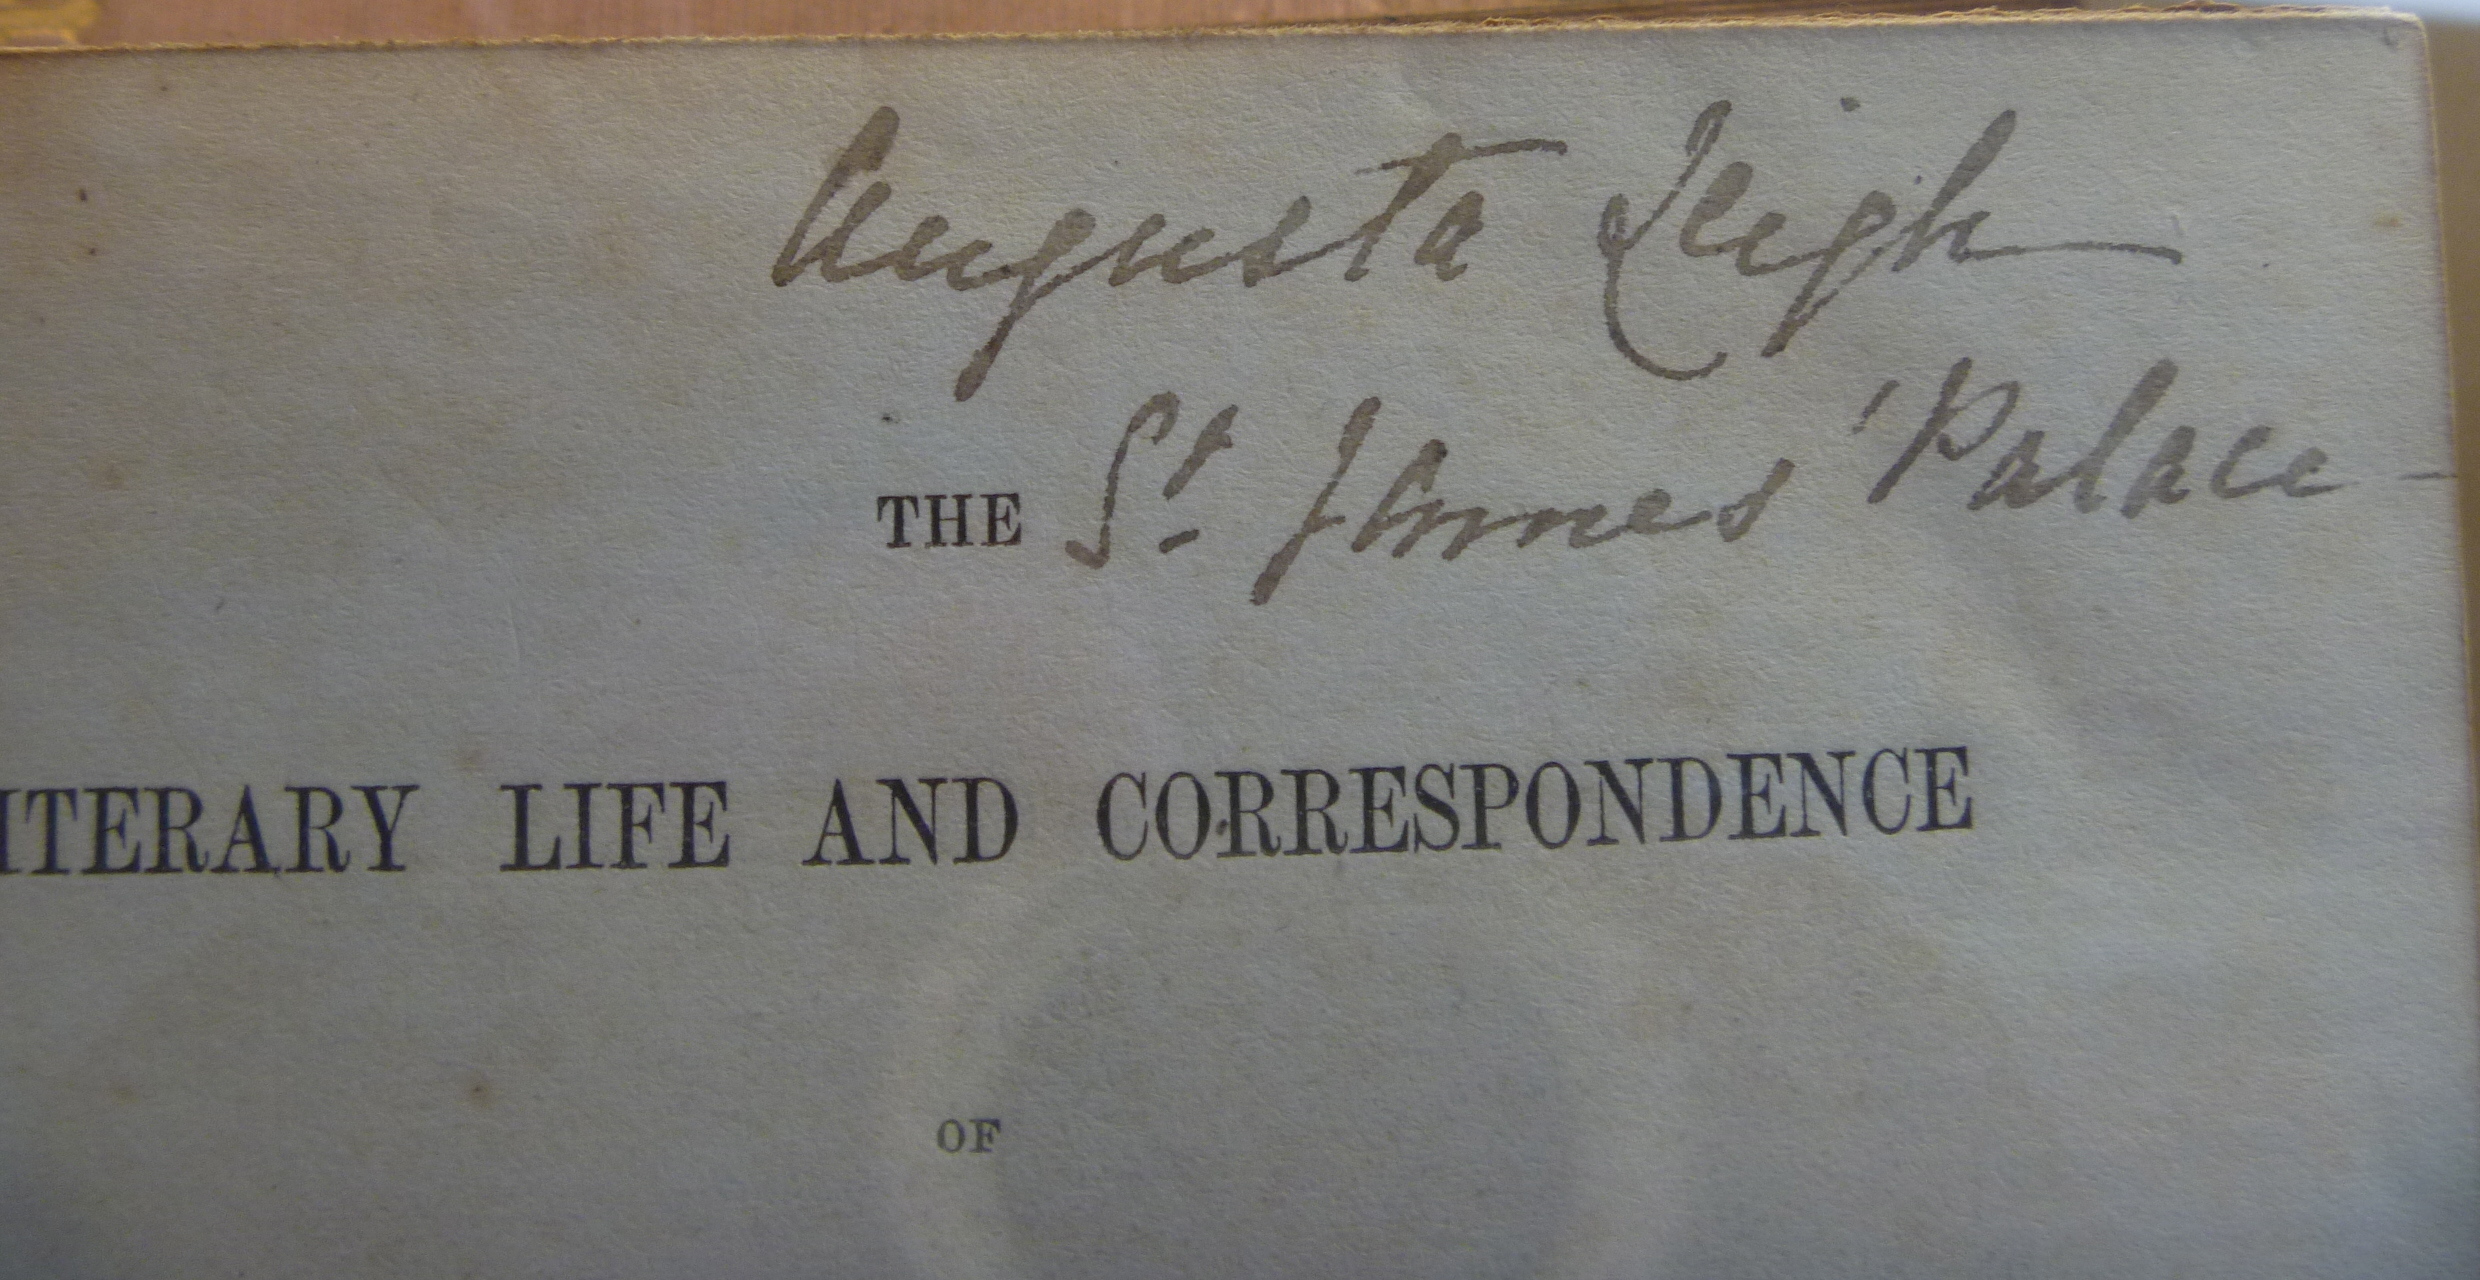 Augusta Leigh
THE St. James' Palace -
ITERARY LIFE AND CORRESPONDENCE
OF